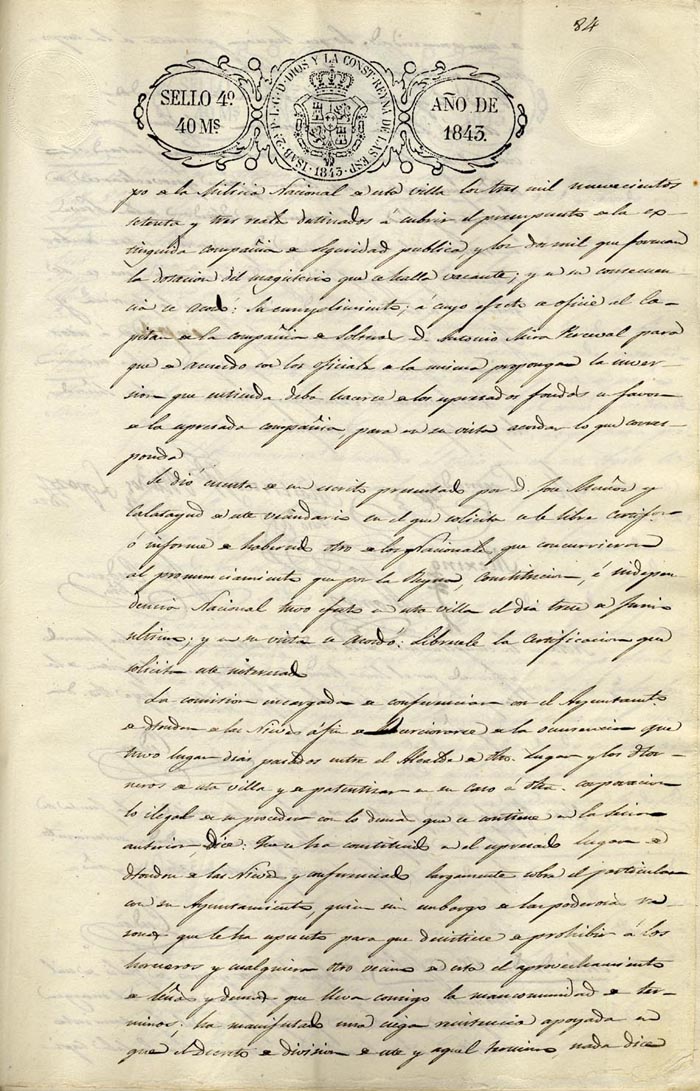 84
SELLO 4º
40 Ms
ISAB. 2ª P. L. G. D. DIOS Y LA CONST. REYNA DE LAS ESP. 1843.
AÑO DE
1843.
po de la Milicia Nacional de esta villa los tres mil nuevecientos
setenta y tres reales destinados á cubrir el presupuesto de la ex-
tinguida compañia de seguridad publica y los dos mil que forman
la dotacion del magisterio que se halla vacante; y en su consecuen-
cia se acordó: Su cumplimiento; á cuyo efecto se oficie al Ca-
pitan de la compañia de D. Antonio Mira Perceval para
que de acuerdo con los oficiales de la misma propongan la inver-
sion que entienda deba hacerse de los espresados fondos á favor
de la espresada compañia para en su vista acordar lo que corres-
ponda
Se dió cuenta de un escrito presentado por D. José Muñoz y
Calatayud de este vecindario en el que solicita se le libre certific.
ó informe de haber sido otro de los Nacionales que concurrieron
al pronunciamiento que por la Reyna, Constitucion, é indepen-
dencia Nacional tuvo efecto en esta villa el dia trece de Junio
ultimo; y en su vista se acordó: Librarsele la certificacion que
solicita este interesado
La comision encargada de conferenciar con el Ayuntamto.
de Hondon de las Nieves á fin de la ocurrencia que
tuvo lugar dias pasados entre el Alcalde de dho. Lugar y los Hor-
neros de esta villa y de patentizar en su caso á dha. corporacion
lo ilegal de su proceder con lo demas que se contiene en la sesion
anterior, dice: Que se ha constituido en el espresado lugar de
Hondon de las Nieves y conferenciado largamente sobre el particular
con su Ayuntamiento, quien sin embargo de las poderosas ra-
zones que le ha espuesto para que desistiese de prohibir á los
horneros y cualquiera otro vecino de esta el aprovechamiento
de leñas y demas que lleva consigo la mancomunidad de ter-
minos: ha manifestado una ciega resistencia apoyada en
que el Decreto de division de este y aquel termino, nada dice